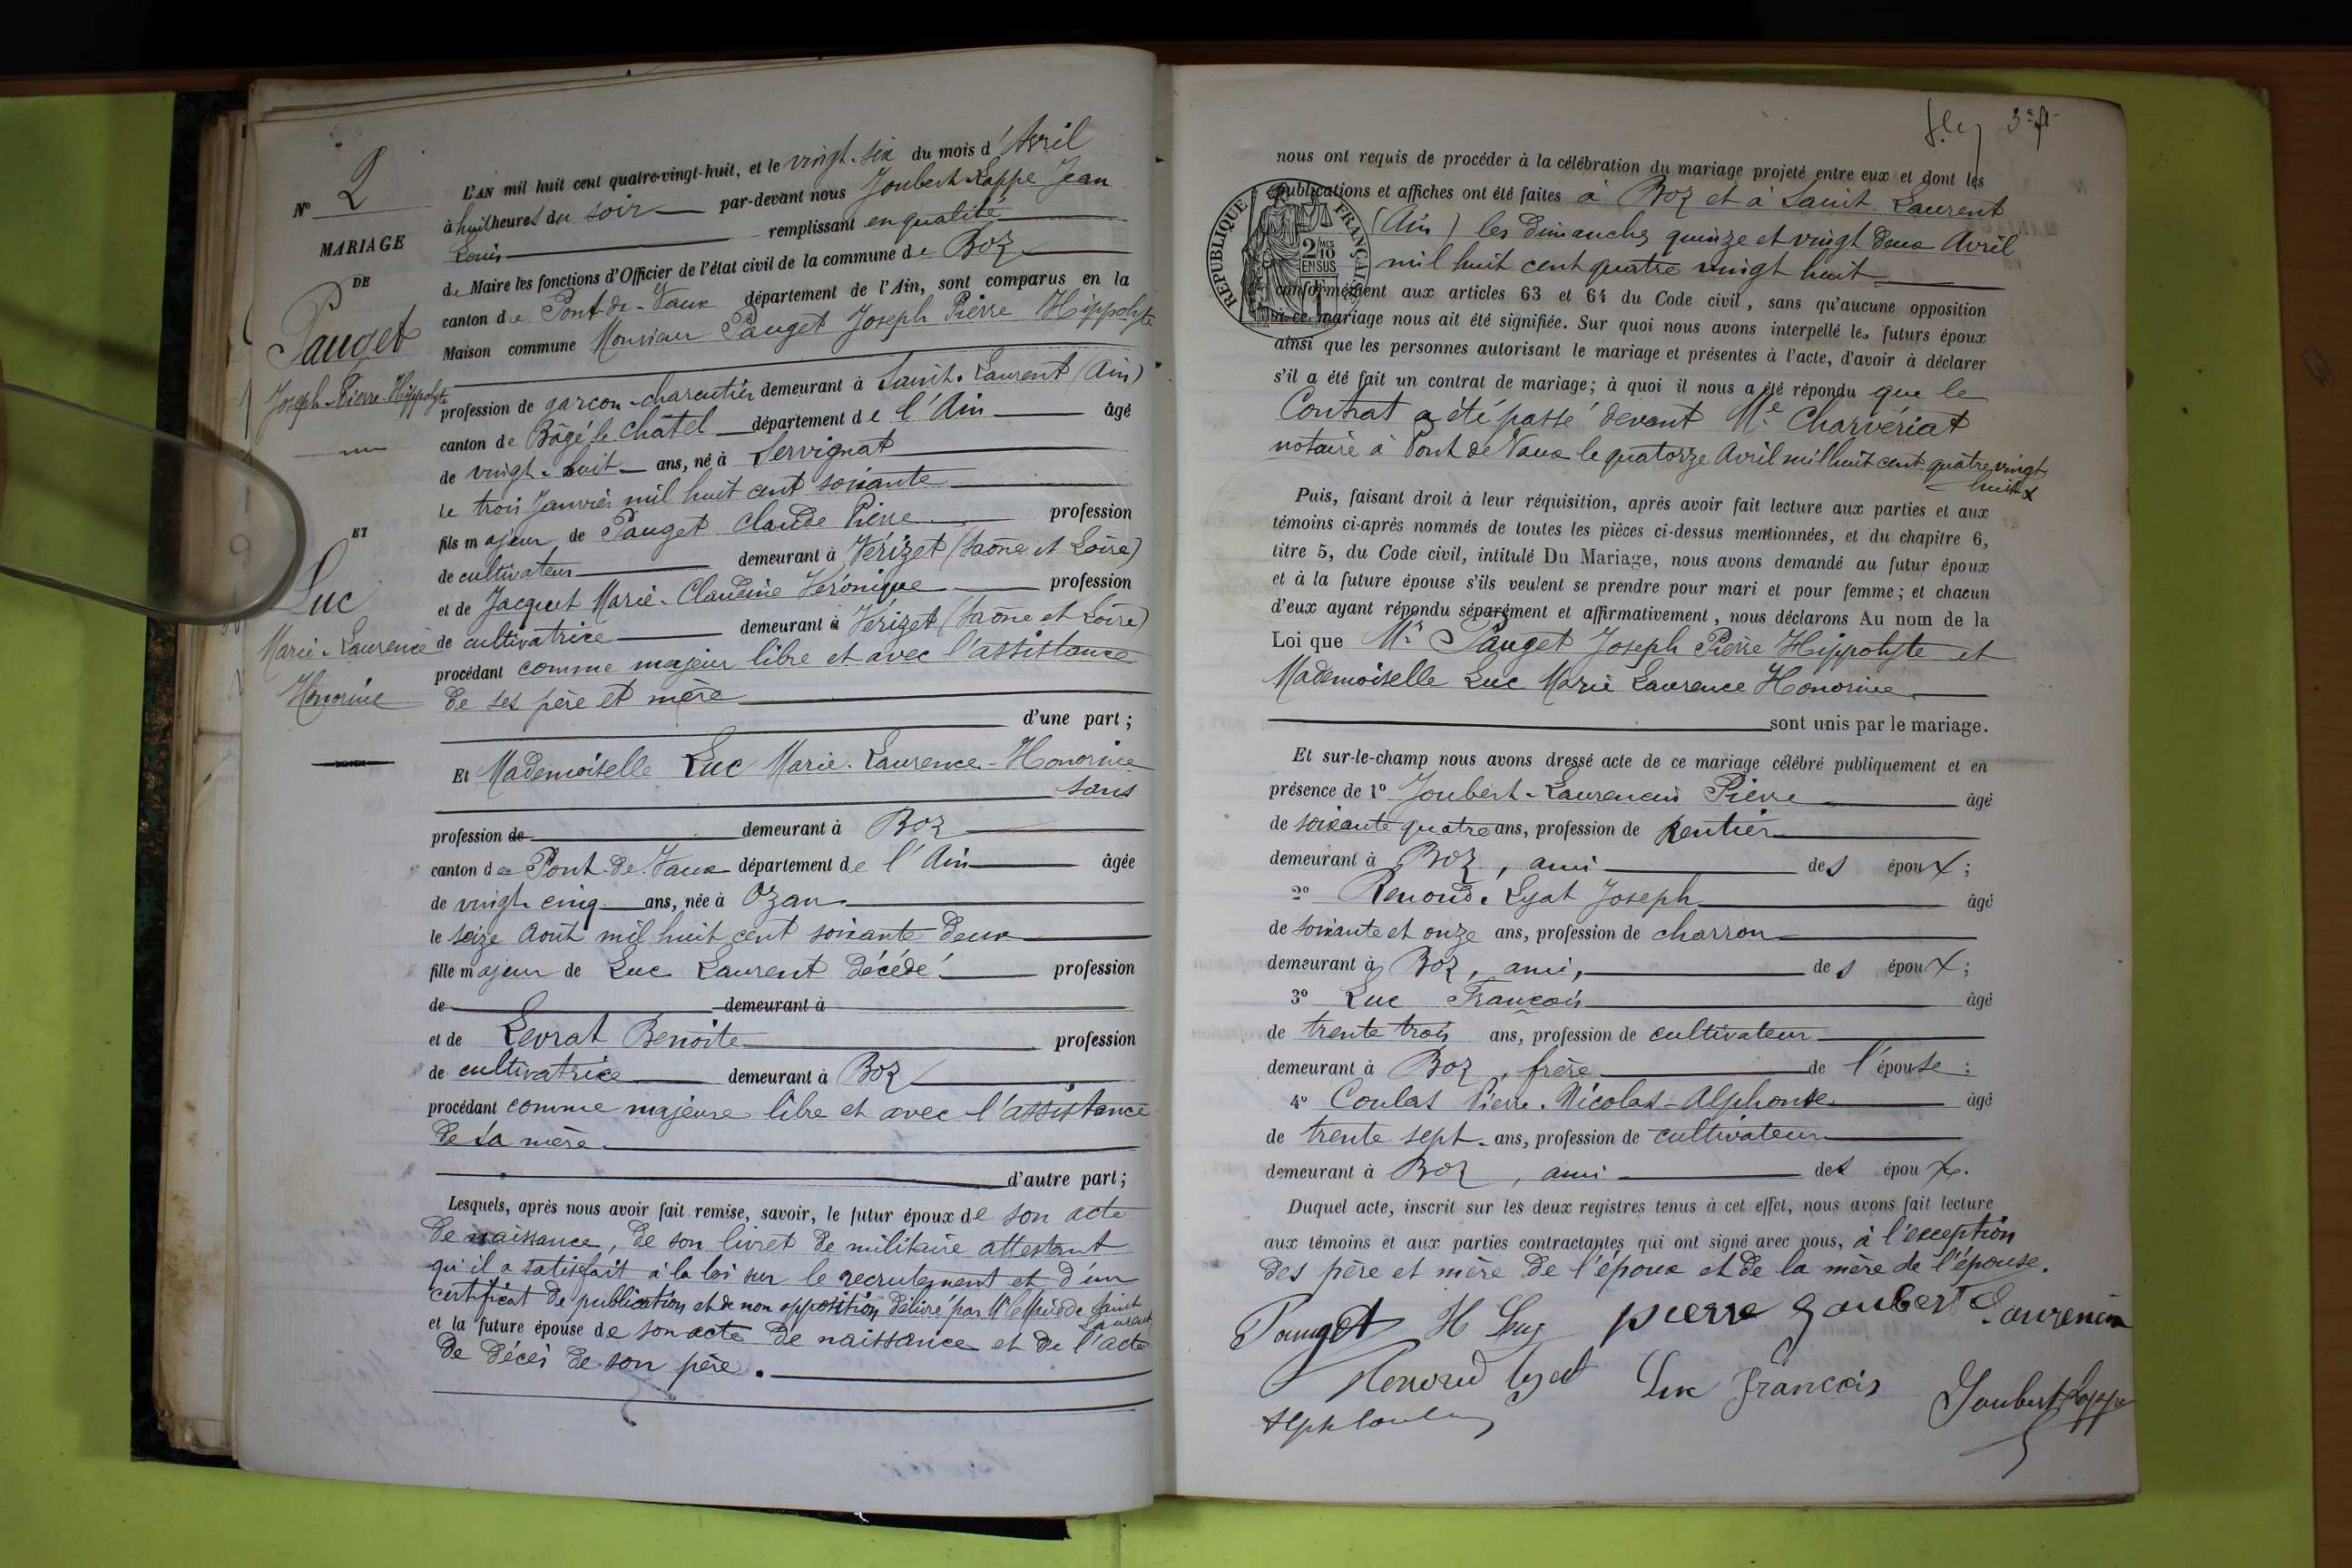 N° 2
MARIAGE
DE
Pauget
Joseph-Pierre-Hippolyte
ET
Luc
Marie-Laurence
Honorine
L'AN mil huit cent quatre-vingt-huit, et le vingt-six du mois d'Avril
à huit heures du soir par-devant nous Joubert-Loppe Jean
Louis remplissant en qualité
de Maire les fonctions d'Officier de l'état civil de la commune de Boz
canton de Pont-de-Vaux département de l'Ain, sont comparus en la
Maison commune Monsieur Pauget Joseph Pierre Hippolyte
profession de garçon-charcutier demeurant à Saint-Laurent (Ain)
canton de Bâgé-le-Châtel département de l'Ain âgé
de vingt-huit ans, né à Servignat
le trois Janvier mil huit cent soixante
fils majeur de Pauget Claude Pierre profession
de cultivateur demeurant à Vérizet (Saône et Loire)
et de Jacquet Marie-Claudine Véronique profession
de cultivatrice demeurant à Vérizet (Saône et Loire)
procédant comme majeur libre et avec l'assistance
de ses père et mère
d'une part ;
Et Mademoiselle Luc Marie-Laurence-Honorine
sans
profession de demeurant à Boz
canton de Pont-de-Vaux département de l'Ain âgée
de vingt-cinq ans, née à Ozan
le seize Août mil huit cent soixante deux
fille majeur de Luc Laurent décédé profession
de demeurant à
et de Levrat Benoite profession
de cultivatrice demeurant à Boz
procédant comme majeure libre et avec l'assistance
de sa mère
d'autre part ;
Lesquels, après nous avoir fait remise, savoir, le futur époux de son acte
de naissance, de son livret de militaire attestant
qu'il a satisfait à la loi sur le recrutement et d'un
certificat de publication et de non opposition délivré par Mr le Maire de Saint
Laurent
et la future épouse de son acte de naissance et de l'acte
de décès de son père.
3e f
nous ont requis de procéder à la célébration du mariage projeté entre eux et dont les
publications et affiches ont été faites à Boz et à Saint Laurent
(Ain) les dimanches quinze et vingt deux Avril
mil huit cent quatre vingt huit
RÉPUBLIQUE FRANÇAISE
2/10 MES
EN SUS
conformément aux articles 63 et 64 du Code civil, sans qu'aucune opposition
à ce mariage nous ait été signifiée. Sur quoi nous avons interpellé les futurs époux
ainsi que les personnes autorisant le mariage et présentes à l'acte, d'avoir à déclarer
s'il a été fait un contrat de mariage ; à quoi il nous a été répondu que le
Contrat a été passé devant Me Charvériat
notaire à Pont de Vaux le quatorze Avril mil huit cent quatre vingt
huit
Puis, faisant droit à leur réquisition, après avoir fait lecture aux parties et aux
témoins ci-après nommés de toutes les pièces ci-dessus mentionnées, et du chapitre 6,
titre 5, du Code civil, intitulé Du Mariage, nous avons demandé au futur époux
et à la future épouse s'ils veulent se prendre pour mari et pour femme ; et chacun
d'eux ayant répondu séparément et affirmativement, nous déclarons Au nom de la
Loi que Mr Pauget Joseph Pierre Hippolyte et
Mademoiselle Luc Marie Laurence Honorine
sont unis par le mariage.
Et sur-le-champ nous avons dressé acte de ce mariage célébré publiquement et en
présence de 1° Joubert-Laurencin Pierre âgé
de soixante quatre ans, profession de Rentier
demeurant à Boz, ami des époux ;
2° Renoud-Lyat Joseph âgé
de soixante et onze ans, profession de charron
demeurant à Boz, ami, des époux ;
3° Luc François âgé
de trente trois ans, profession de cultivateur
demeurant à Boz, frère de l'épouse ;
4° Coulas Pierre-Nicolas-Alphonse âgé
de trente sept ans, profession de cultivateur
demeurant à Boz, ami des époux.
Duquel acte, inscrit sur les deux registres tenus à cet effet, nous avons fait lecture
aux témoins et aux parties contractantes qui ont signé avec nous, à l'exception
des père et mère de l'époux et de la mère de l'épouse.
Pauget H Luc pierre Joubert Laurencin
Renoud lyat Luc François Joubert Loppe
Alph Coulas